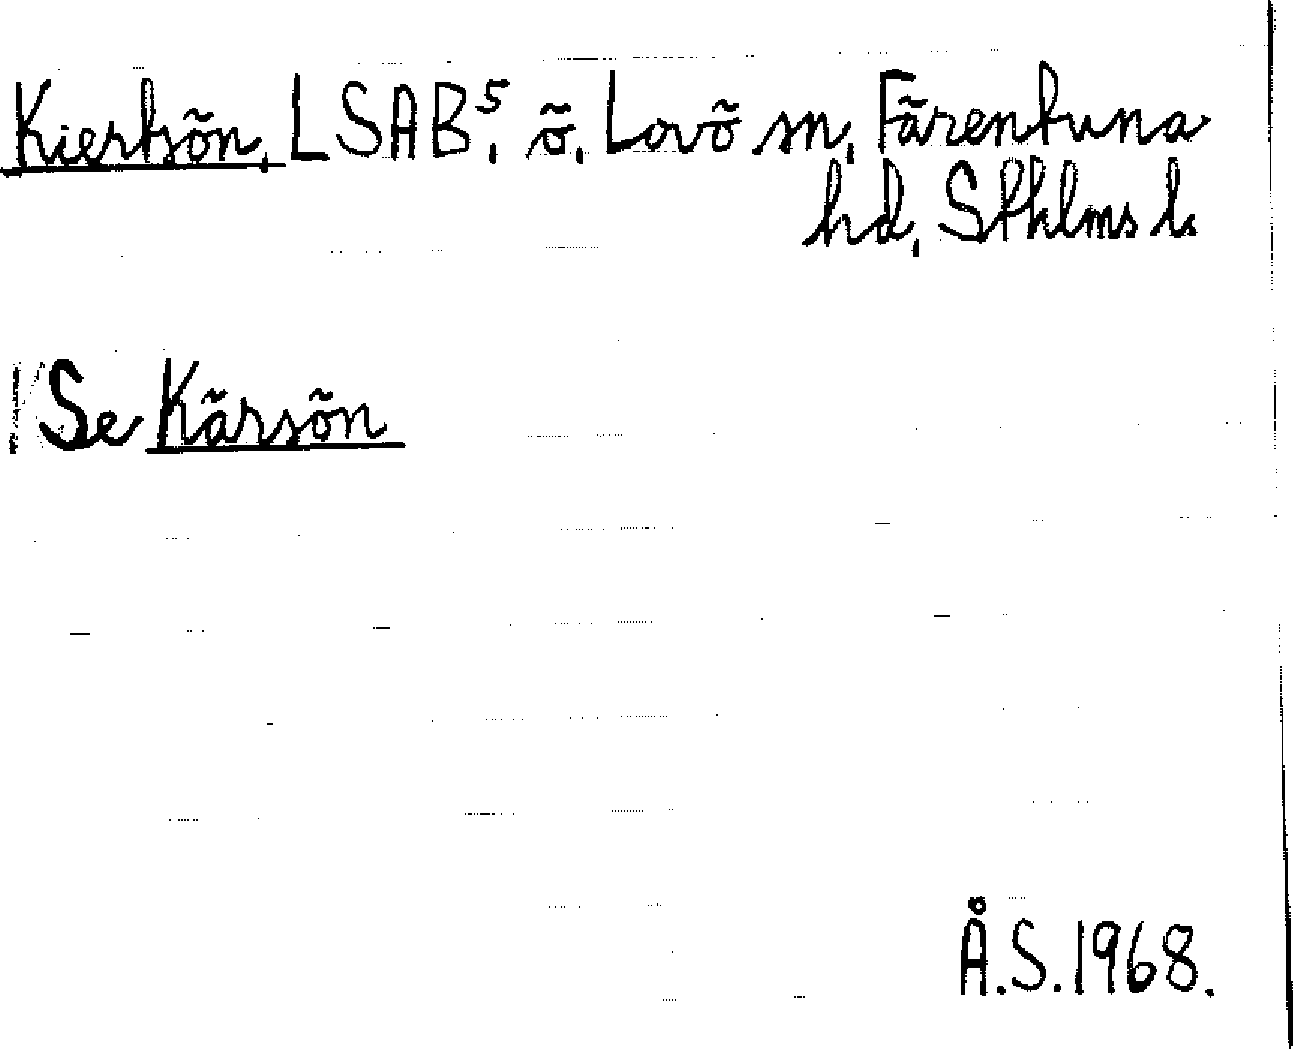 Kiertsön, LSAB⁵, ö, Lovö sn, Färentuna
hd, Sthlms l.
Se Kärsön
Å.S. 1968.